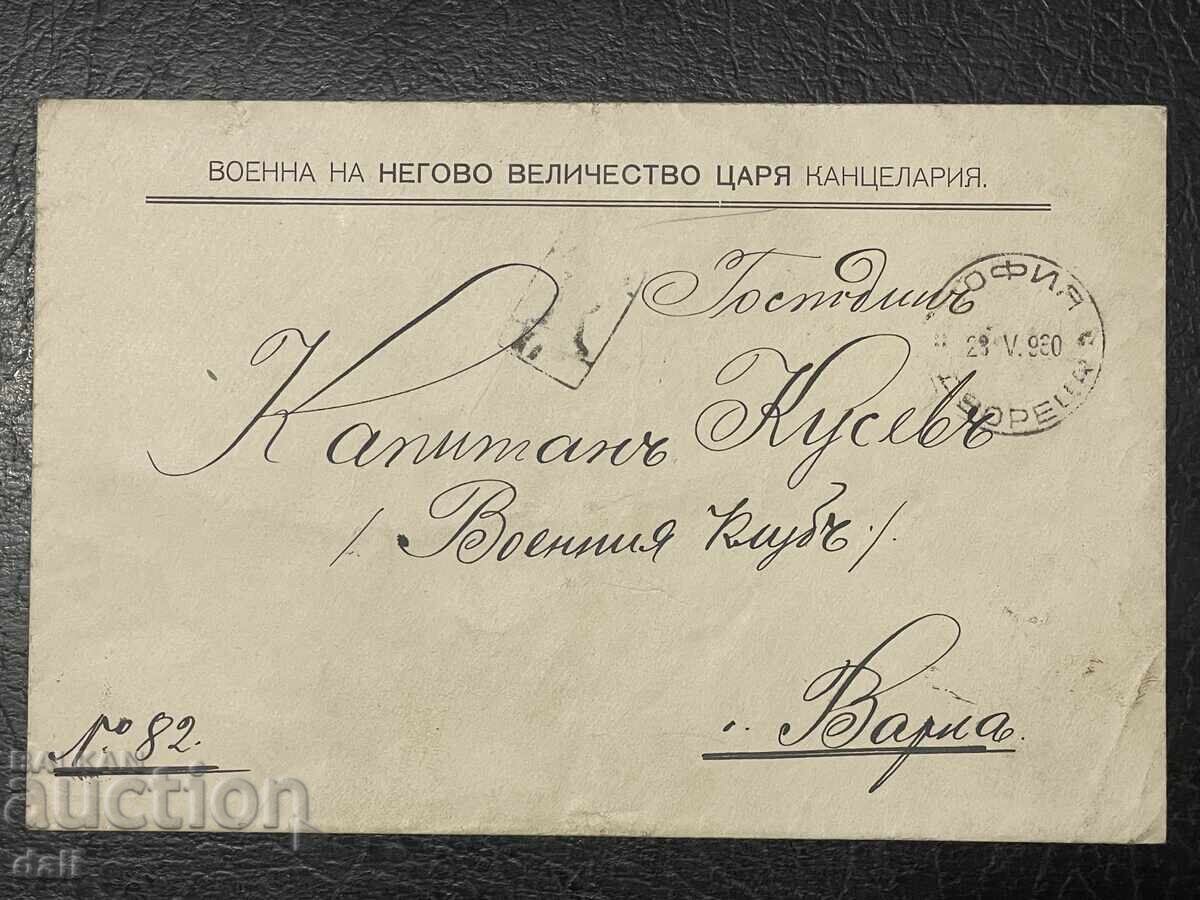 ВОЕННА НА НЕГОВО ВЕЛИЧЕСТВО ЦАРЯ КАНЦЕЛАРИЯ.
Господинъ
Капитанъ Кусевъ
/ Военния Клубъ. /
Варна.
№ 82.
СОФИЯ
ДВОРЕЦЪ
BALKAN
auction
dall